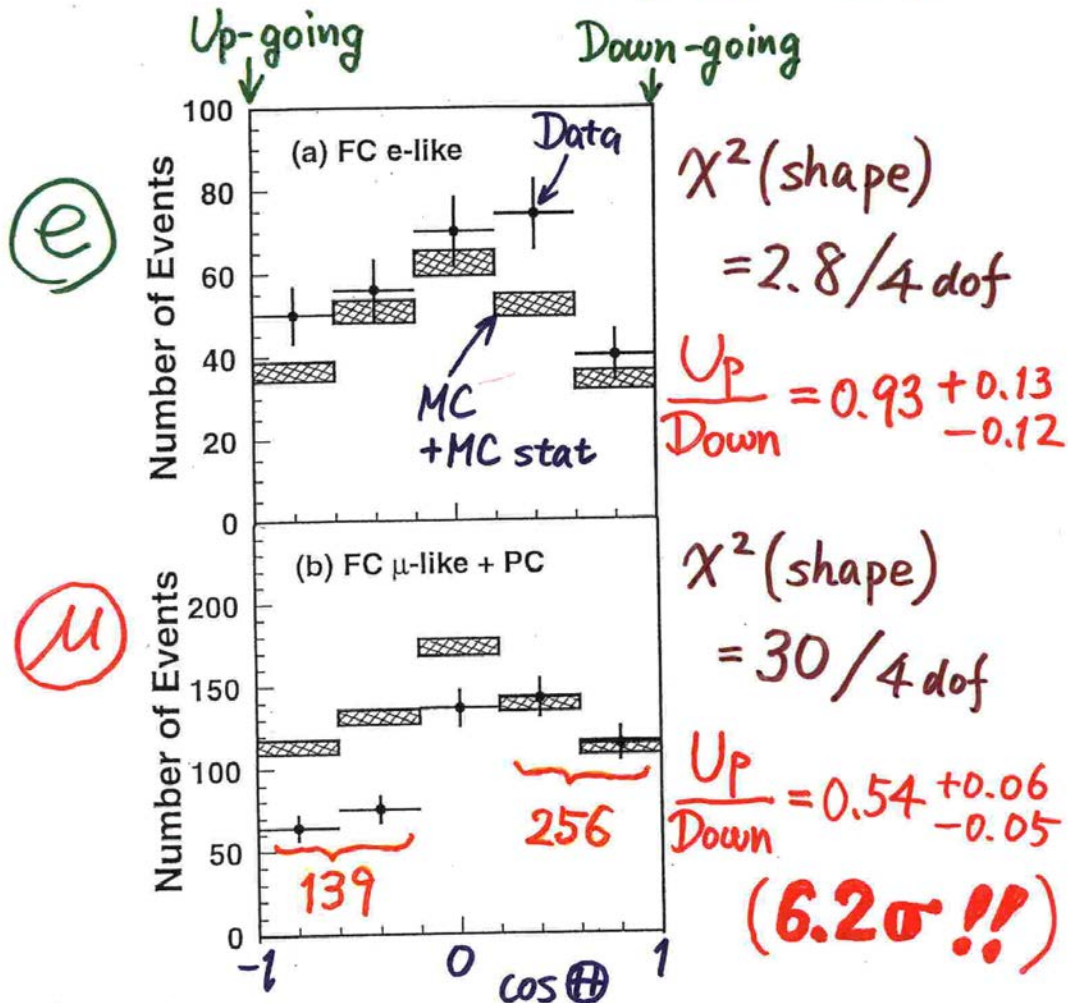 Up-going
Down-going
100
80
60
40
20
0
Number of Events
(a) FC e-like
Data
MC
+MC stat
e
χ² (shape)
= 2.8/4 dof
Up/Down = 0.93 +0.13 -0.12
200
150
100
50
0
Number of Events
(b) FC μ-like + PC
139
256
μ
χ² (shape)
= 30/4 dof
Up/Down = 0.54 +0.06 -0.05
(6.2σ !!)
-1 0 1
cos Θ